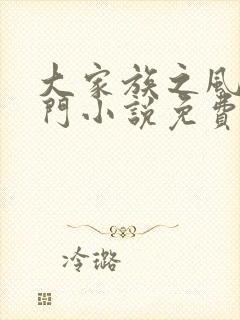 大家族之风
門小說免費
冷璐